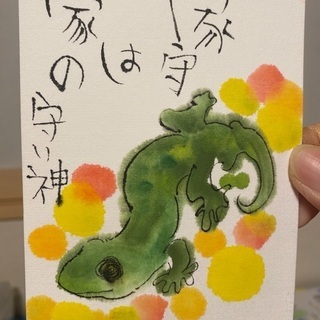 家守
は
家の
守り神